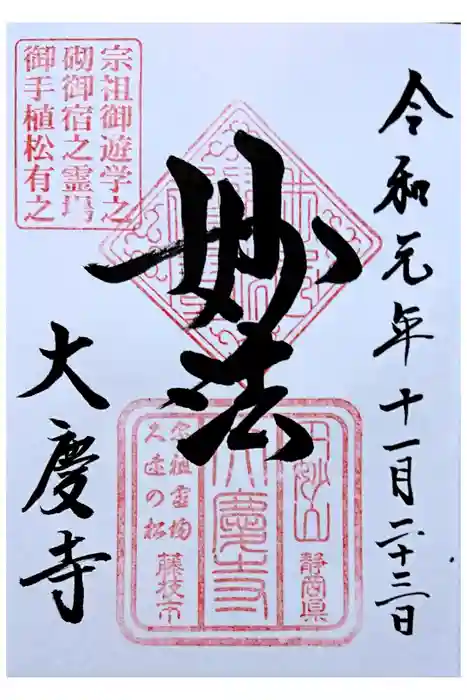 令和元年十一月二十三日
宗祖御遊学之
砌御宿之霊場
御手植松有之
妙法
円妙山
大慶寺
静岡県
宗祖霊場
久遠の松
藤枝市
大慶寺